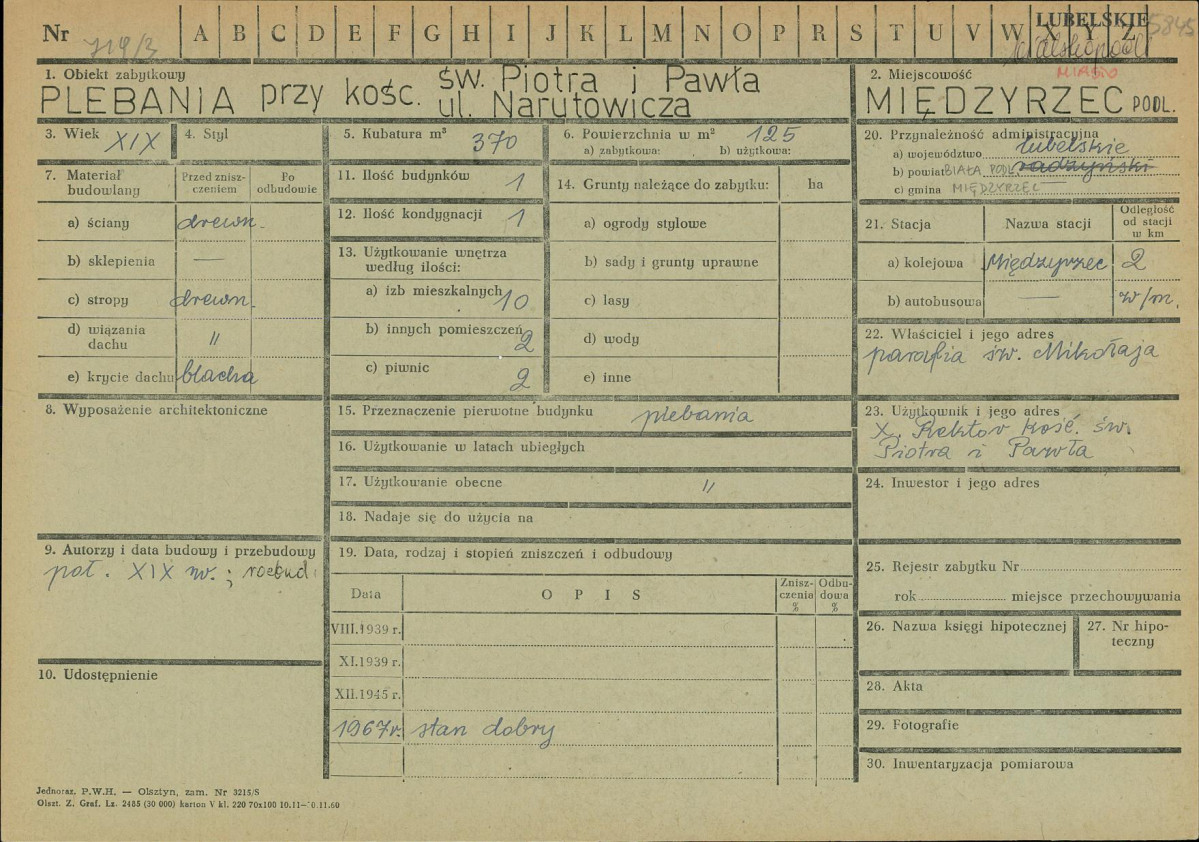 Nr 719/3 A B C D E F G H I J K L M N O P R S T U V W X Y Z
LUBELSKIE 5845
bialskopodl.
MIASTO
1. Obiekt zabytkowy
PLEBANIA przy kośc. św. Piotra i Pawła
ul. Narutowicza
2. Miejscowość
MIĘDZYRZEC PODL.
3. Wiek XIX
4. Styl
5. Kubatura m³ 370
6. Powierzchnia w m² 125
a) zabytkowa: b) użytkowa:
7. Materiał budowlany
Przed zniszczeniem
Po odbudowie
a) ściany drewn.
b) sklepienia —
c) stropy drewn.
d) wiązania dachu "
e) krycie dachu blacha
8. Wyposażenie architektoniczne
9. Autorzy i data budowy i przebudowy
poł. XIX w.; rozbud.
10. Udostępnienie
11. Ilość budynków 1
12. Ilość kondygnacji 1
13. Użytkowanie wnętrza
według ilości:
a) izb mieszkalnych 10
b) innych pomieszczeń 2
c) piwnic 2
14. Grunty należące do zabytku: ha
a) ogrody stylowe
b) sady i grunty uprawne
c) lasy
d) wody
e) inne
15. Przeznaczenie pierwotne budynku plebania
16. Użytkowanie w latach ubiegłych
17. Użytkowanie obecne "
18. Nadaje się do użycia na
19. Data, rodzaj i stopień zniszczeń i odbudowy
Data OPIS Zniszczenia % Odbudowa %
VIII.1939 r.
XI.1939 r.
XII.1945 r.
1967r. stan dobry
20. Przynależność administracyjna
a) województwo lubelskie
b) powiat BIAŁA PODL. radzyński
c) gmina MIĘDZYRZEC
21. Stacja Nazwa stacji Odległość od stacji w km
a) kolejowa Międzyrzec 2
b) autobusowa — w/m.
22. Właściciel i jego adres
parafia św. Mikołaja
23. Użytkownik i jego adres
X. Rektor Kość. św.
Piotra i Pawła
24. Inwestor i jego adres
25. Rejestr zabytku Nr
rok miejsce przechowywania
26. Nazwa księgi hipotecznej
27. Nr hipoteczny
28. Akta
29. Fotografie
30. Inwentaryzacja pomiarowa
Jednoraz. P.W.H. — Olsztyn, zam. Nr 3215/S
Olszt. Z. Graf. Lz. 2485 (30 000) karton V kl. 220 70x100 10.11—10.11.60